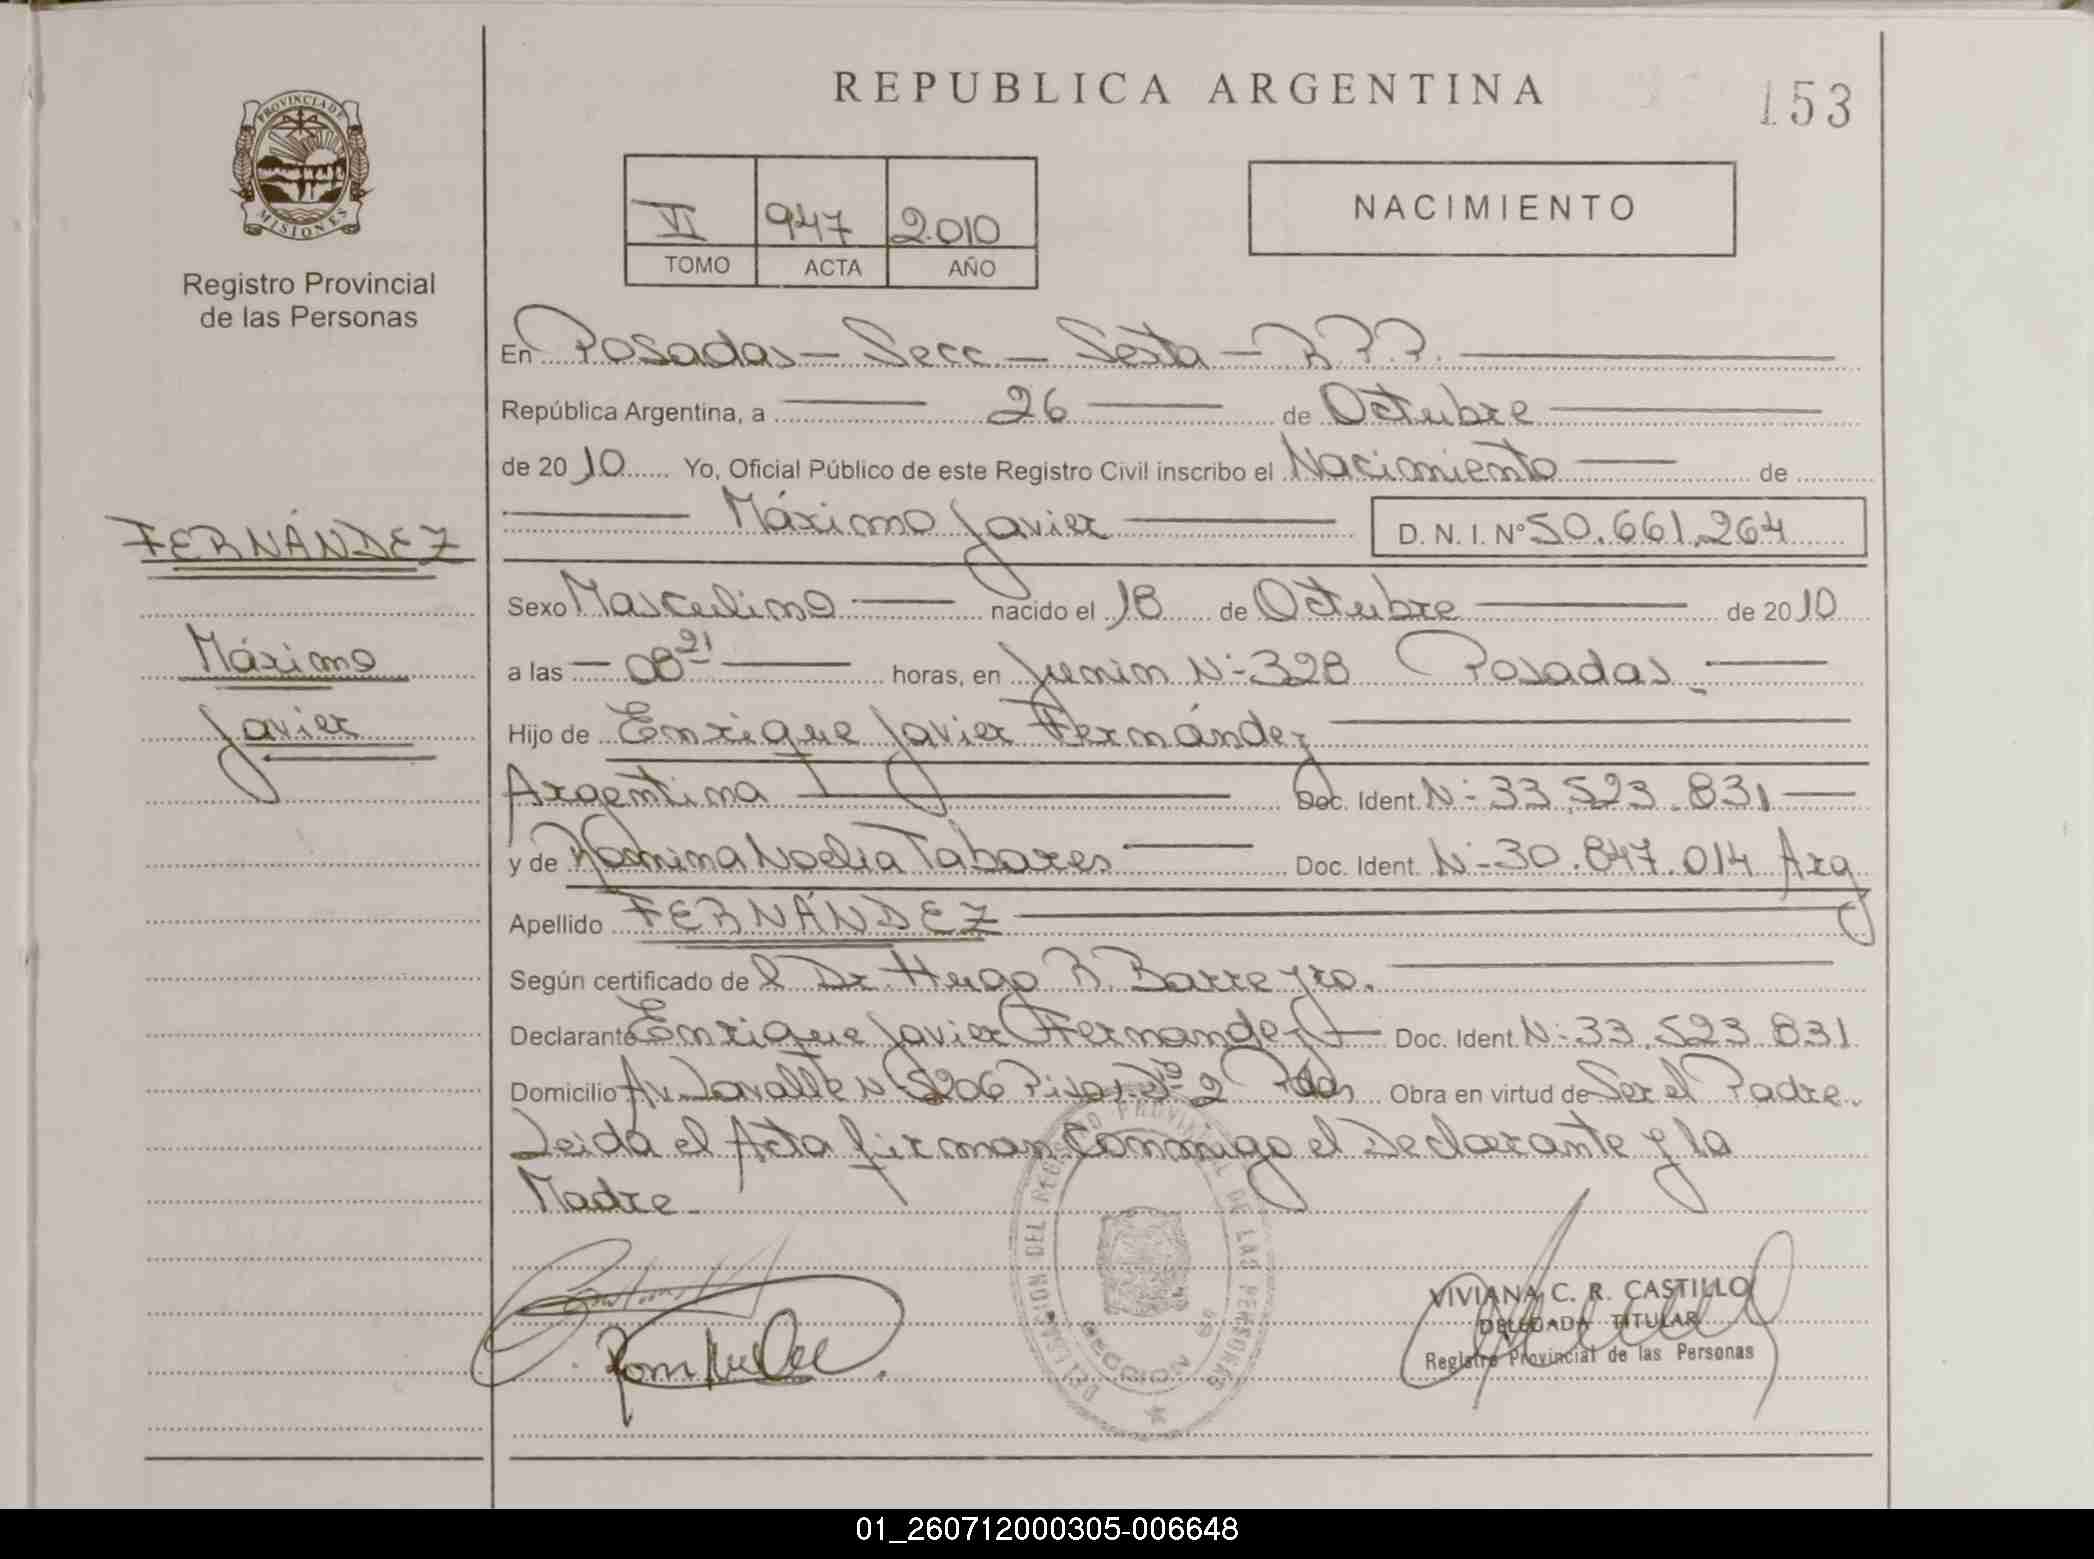 REPUBLICA ARGENTINA
153
PROVINCIA DE
MISIONES
Registro Provincial
de las Personas
VI 947 2.010
TOMO ACTA AÑO
NACIMIENTO
En Posadas - Secc - Sexta - R.P.P.
República Argentina, a 26 de Octubre
de 2010 Yo, Oficial Público de este Registro Civil inscribo el Nacimiento de
Máximo Javier D. N. I. Nº 50.661.264
FERNÁNDEZ
Máximo
Javier
Sexo Masculino nacido el 18 de Octubre de 2010
a las 08 21 horas, en Junin Nº 328 Posadas.
Hijo de Enrique Javier Fernández
Argentina Doc. Ident. Nº 33.523.831
y de Romina Noelia Tabares Doc. Ident. Nº 30.847.014 Arg
Apellido FERNÁNDEZ
Según certificado de l Dr. Hugo R. Barreyro.
Declarante Enrique Javier Fernandez Doc. Ident. Nº 33.523.831
Domicilio Av. Lavalle Nº 5206 Piso 2 Pdas Obra en virtud de Ser el Padre.
Leida el Acta firman Conmigo el Declarante y la
Madre
DELEGACION DEL REGISTRO PROVINCIAL DE LAS PERSONAS
SECCION 6ª
VIVIANA C. R. CASTILLO
DELEGADA TITULAR
Registro Provincial de las Personas
01_260712000305-006648